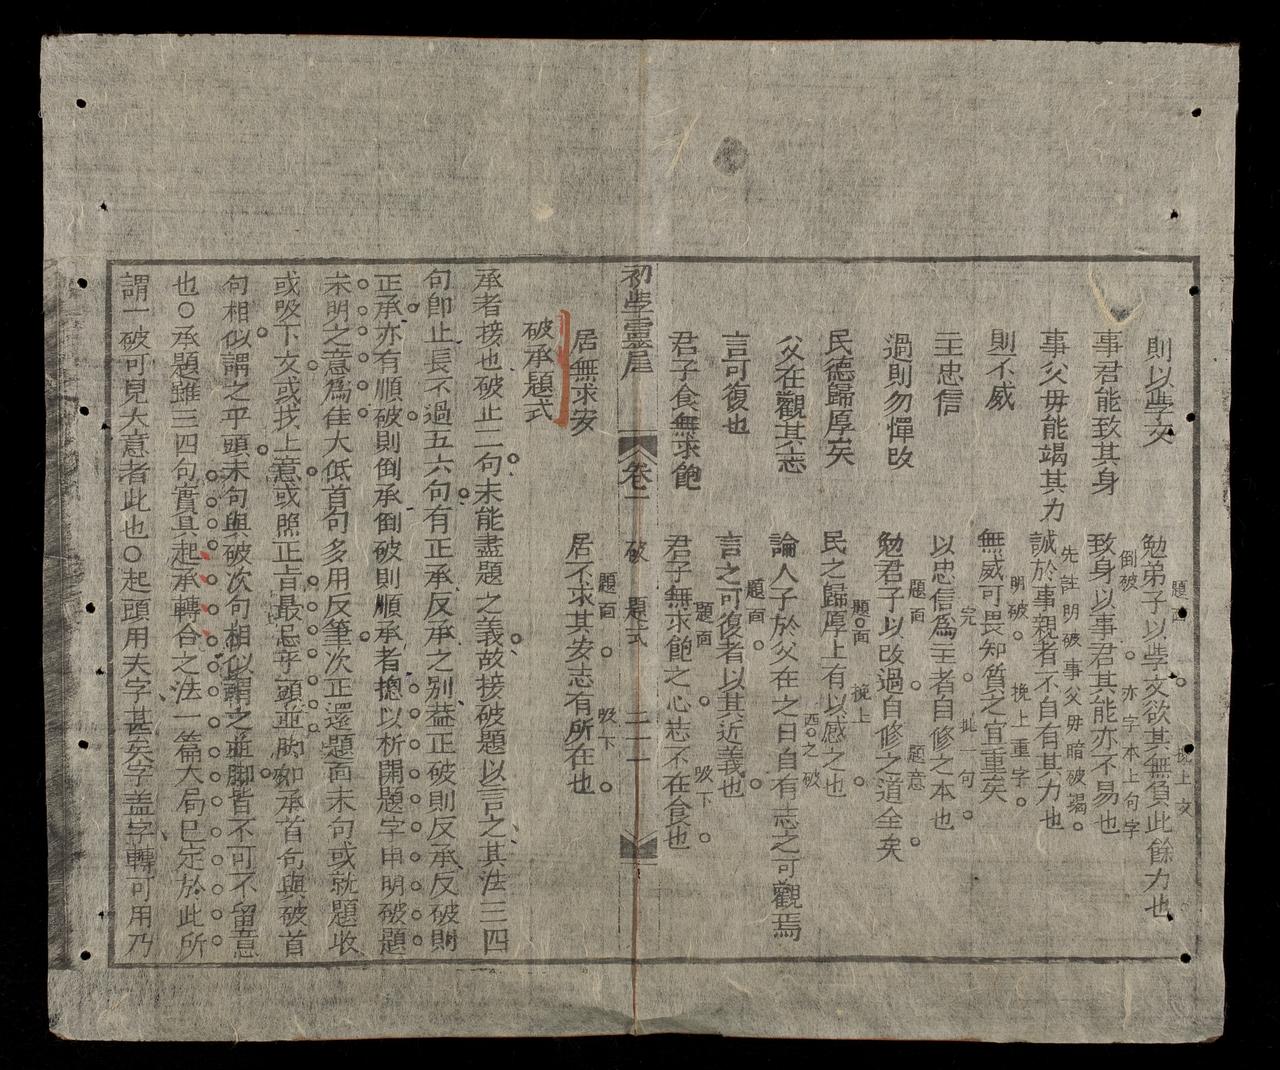 則以學文
勉弟子以學文欲其無負此餘力也
題面
挽上文
事君能致其身
致身以事君其能亦不易也
倒破
亦字本上句字
事父毋能竭其力
誠於事親者不自有其力也
先註明破事父毋暗破竭
則不威
無威可畏知質之宜重矣
明破
挽上重字
主忠信
以忠信為主者自修之本也
完
此一句
過則勿憚改
勉君子以改過自修之道全矣
題面
題意
民德歸厚矣
民之歸厚上有以感之也
題面
挽上
父在觀其志
論人子於父在之日自有志之可觀焉
之破
言可復也
言之可復者以其近義也
題面
君子食無求飽
君子無求飽之心志不在食也
題面
吸下
居無求安
居不求其安志有所在也
題面
吸下
初學靈犀
卷二
破題式
二一
破承題式
承者接也破止二句未能盡題之義故接破題以言之其法三四
句即止長不過五六句有正承反承之別蓋正破則反承反破則
正承亦有順破則倒承倒破則順承者摠以析開題字申明破題
未明之意為佳大低首句多用反筆次正還題面末句或就題收
或吸下文或找上意或照正旨最忌平頭並脚如承首句與破首
句相似謂之平頭末句與破次句相似謂之並脚皆不可不留意
也○承題雖三四句實具起承轉合之法一篇大局已定於此所
謂一破可見大意者此也○起頭用夫字甚矣字盖字轉可用乃